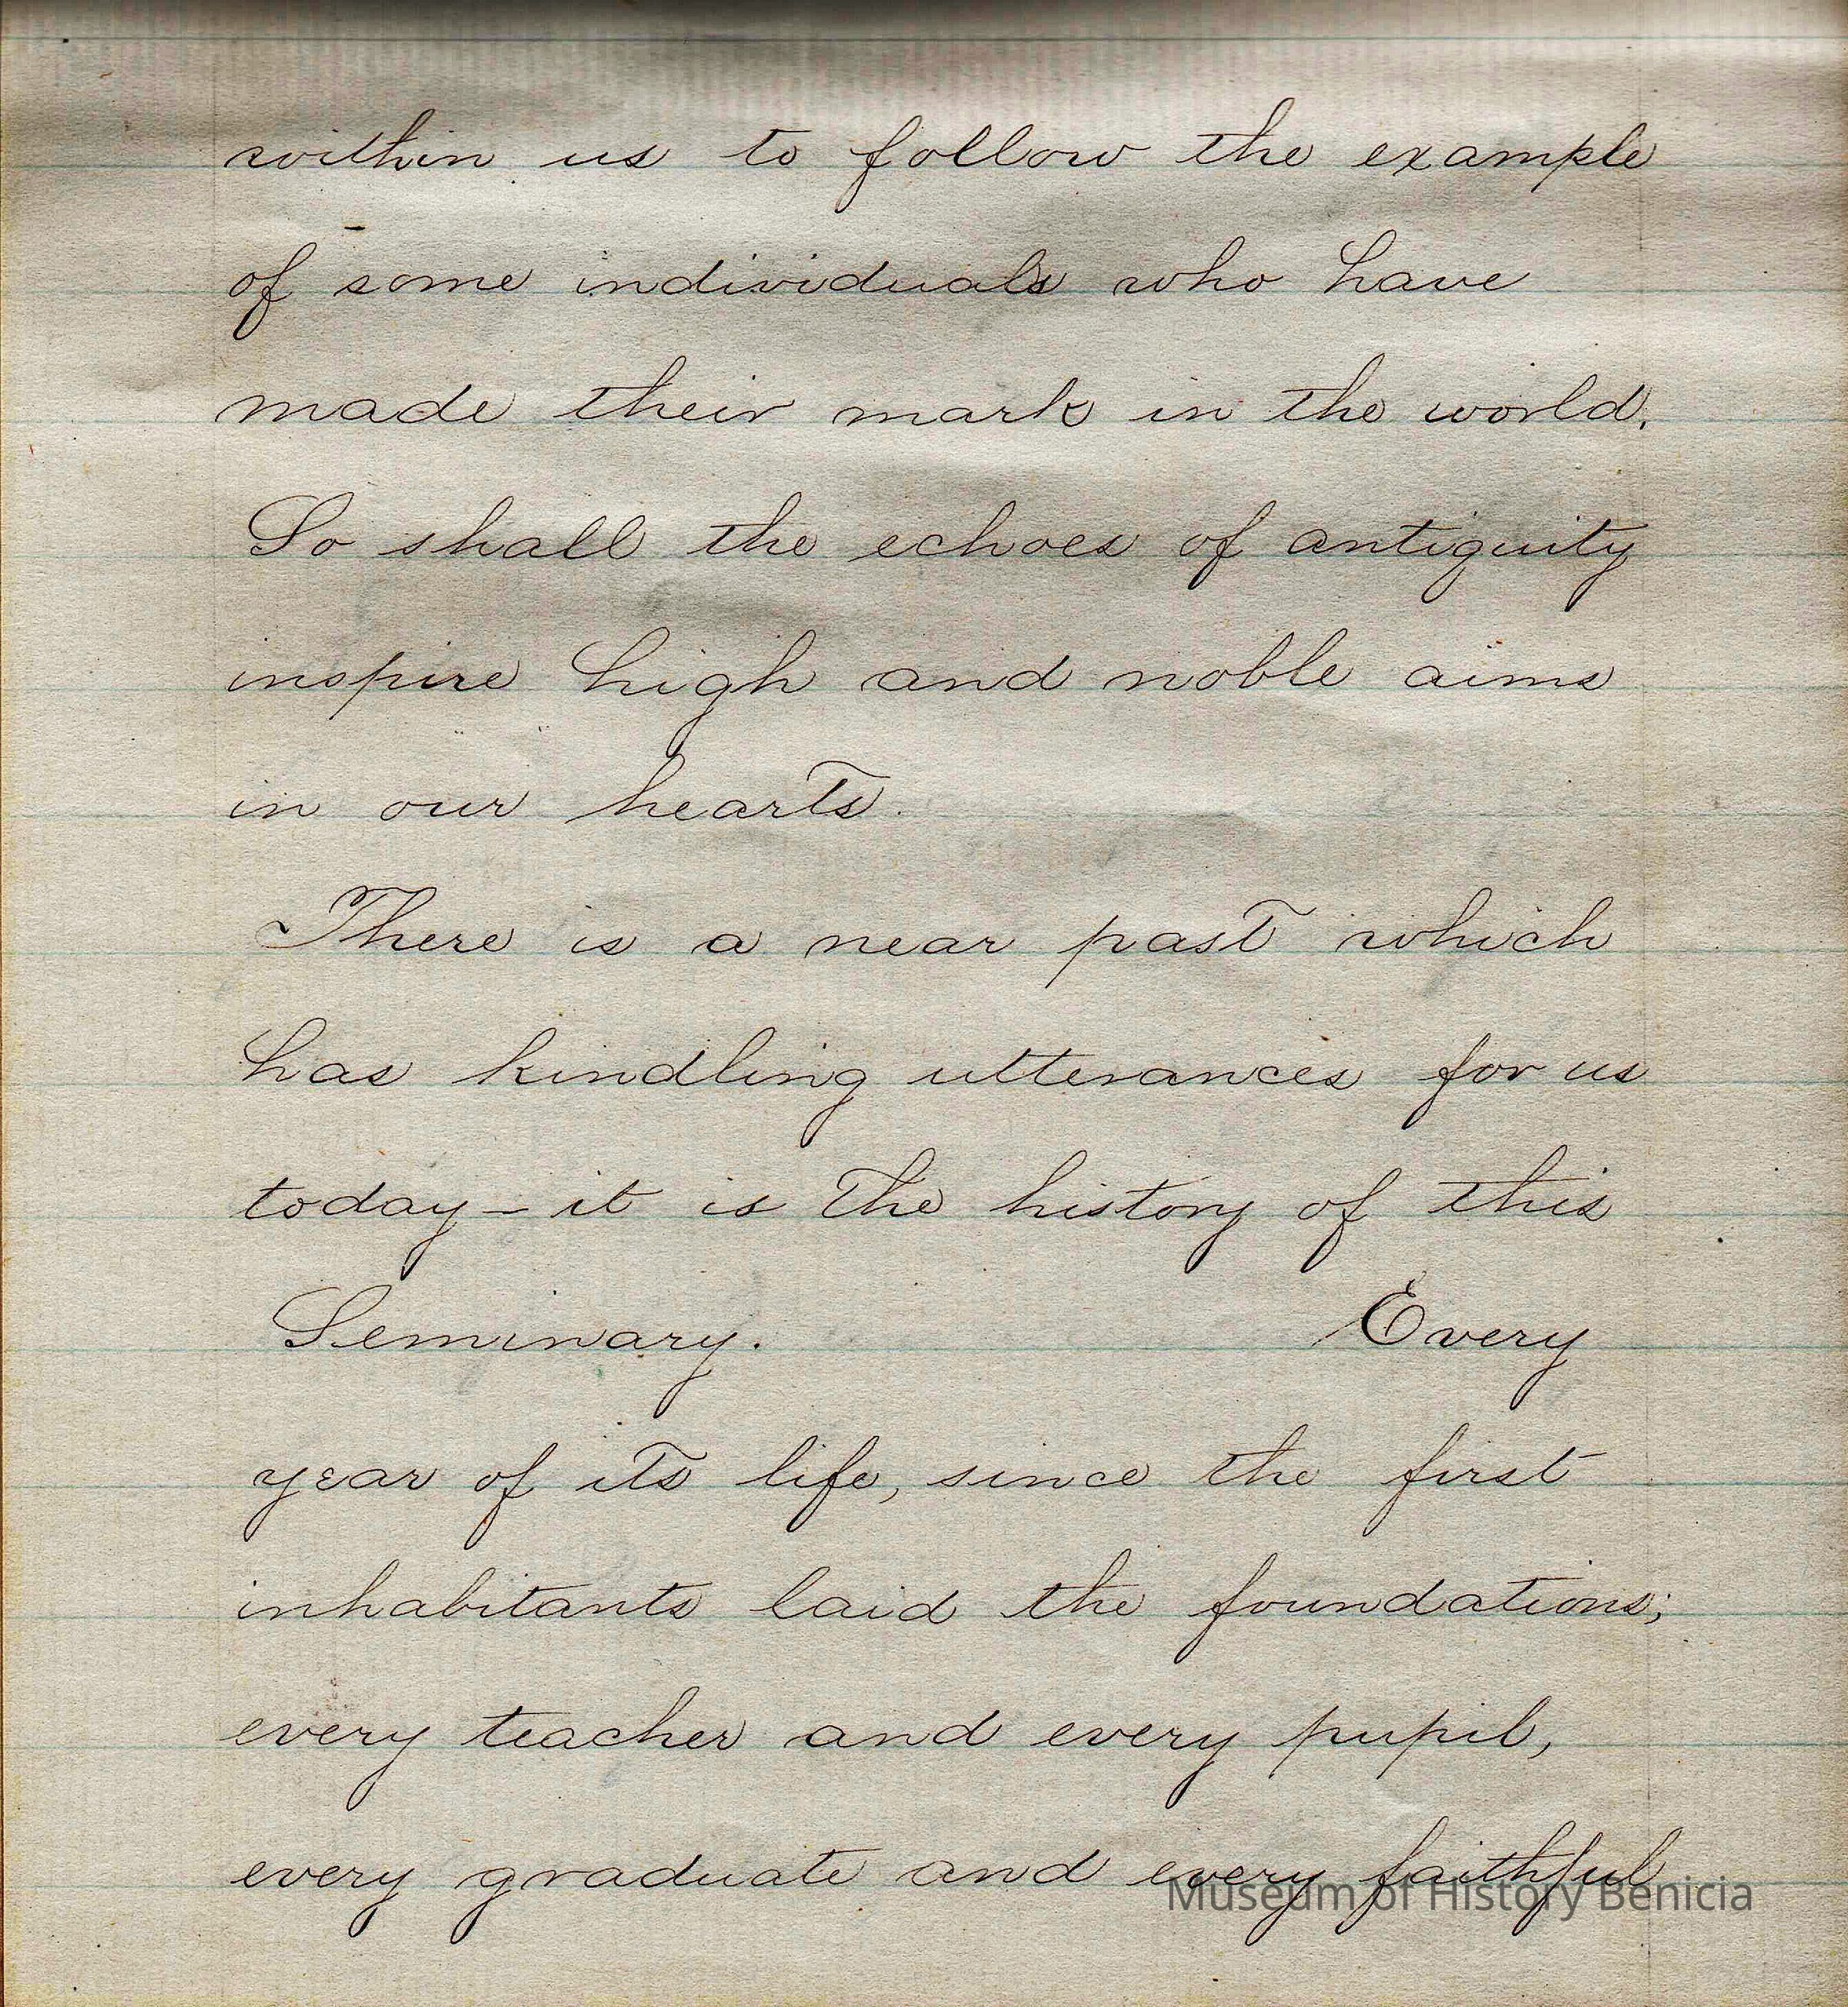 within us to follow the example
of some individuals who have
made their mark in the world.
So shall the echoes of antiquity
inspire high and noble aims
in our hearts.
There is a near past which
has kindling utterances for us
today - it is the history of this
Seminary. Every
year of its life, since the first
inhabitants laid the foundations;
every teacher and every pupil,
every graduate and every faithful
Museum of History Benicia